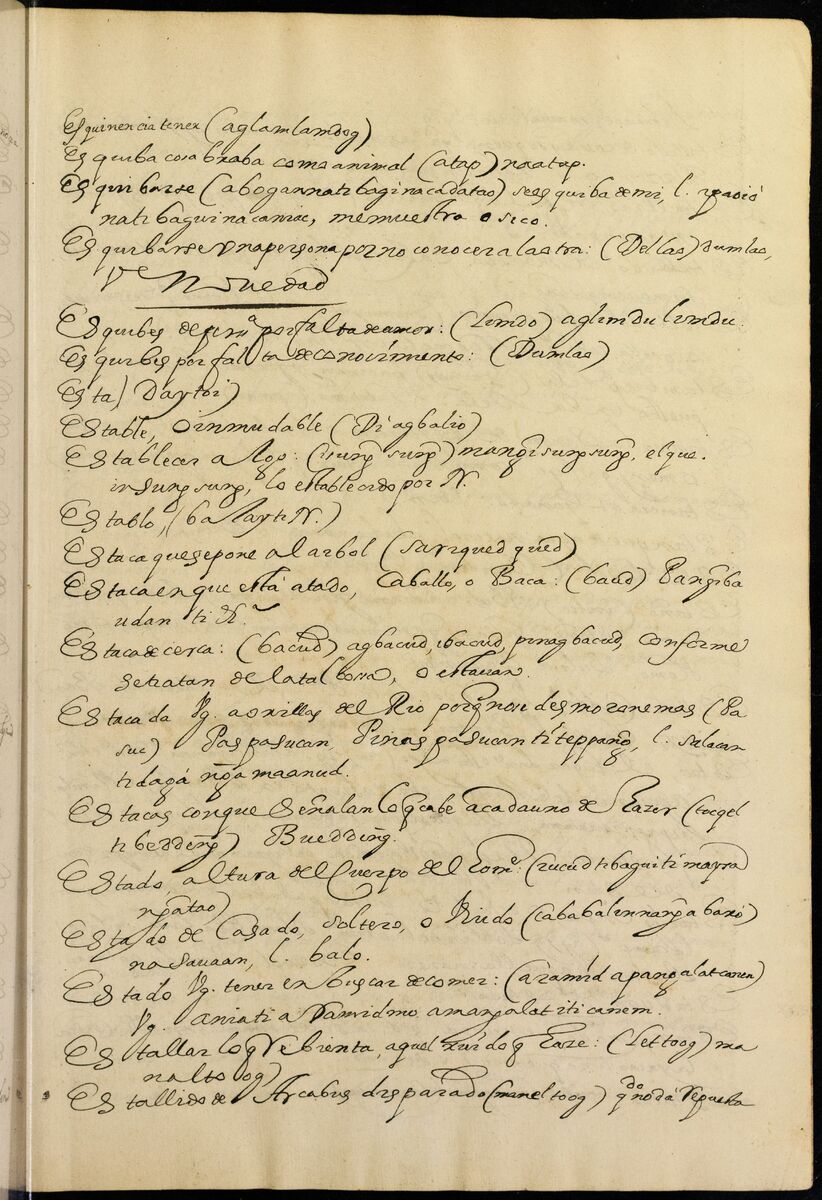 Esquinencia tener (aglamlamdog)
Esquiba cosa braba como animal (atap) naatap.
Esquibarse (abogannati bagi nacadatao) se esquiba de mi, l.
nati bagui nacaniac, memuestra o sico.
Esquibarse Vna persona por no conocer a la otra: (Dellas) dumlas,
Ve Nouedad
Esquibes de pura por falta de amor: (Limdo) aglimdu limdu.
Esquibes por falta de conocimiento: (Dumlas)
Esta) Daytoi)
Estable, o inmudable (Di agbalio)
Establecer a Algo: (sung̃ sung̃) mang̃isung̃sung̃, el que.
insung̃sung̃, lo establecido por N.
Establo, (balayti N.)
Estaca que se pone al arbol (sarigued gued)
Estaca en que està atado, Caballo, o Baca: (baud) Pang̃iba
udan ti N.
Estaca de cerca: (bacud) agbacud, ibacud, pinagbacud, conforme
se tratan de la tal cosa, o estauan.
Estacada Vg. a orillas del Rio porq̃ no se desmorone mas (Pa
suc) Paspasucan, Pinaspasucan ti teppang, l. salacan
ti dagá ng̃a maanud.
Estacas con que señalan lo q̃ cabe a cada uno de hazer (tocqel
ti bedding̃) Buedding̃.
Estado, altura del Cuerpo del hom.e (rucud ti bagui ti maysa
ng̃a tao)
Estado de Casado, soltero, o Viudo (cababalinnang̃a baro)
nasauaan, l. balo.
Estado Vg. tener en buscar de comer: (aramid apang̃alat canen)
Vg. aniati aramidmo amang̃alat iti canem.
Estallar lo q̃ rebienta, aquel ruido q̃ haze: (Lettoog) ma
naltoog)
Estallido de Arcabus disparado (maneltoog) q̃do no dá repuesta